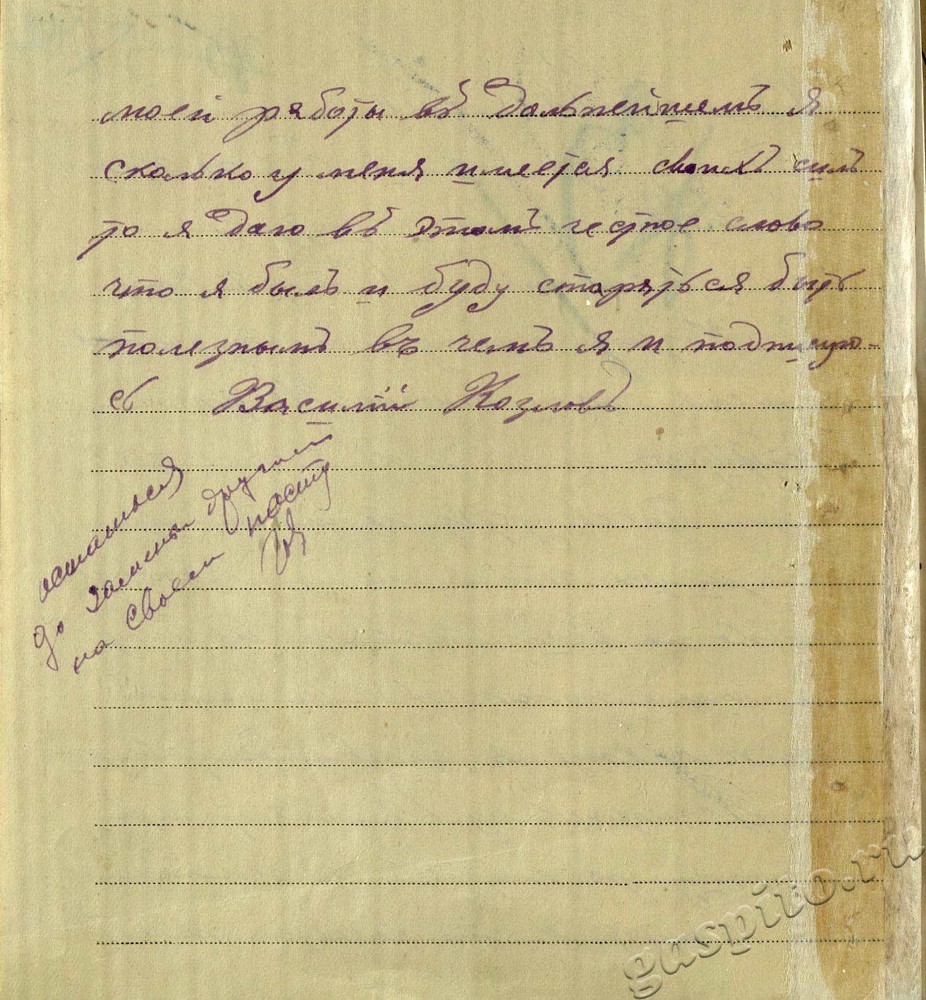 моей работы въ дальнейшемъ я
сколько у меня имеется своихъ силъ
то я даю въ этомъ честное слово
что я былъ и буду стараться быть
полезнымъ въ чемъ я и подписую-
сь Василий Козловъ
остаться
до замены другим
на своем посту
gaspito.ru